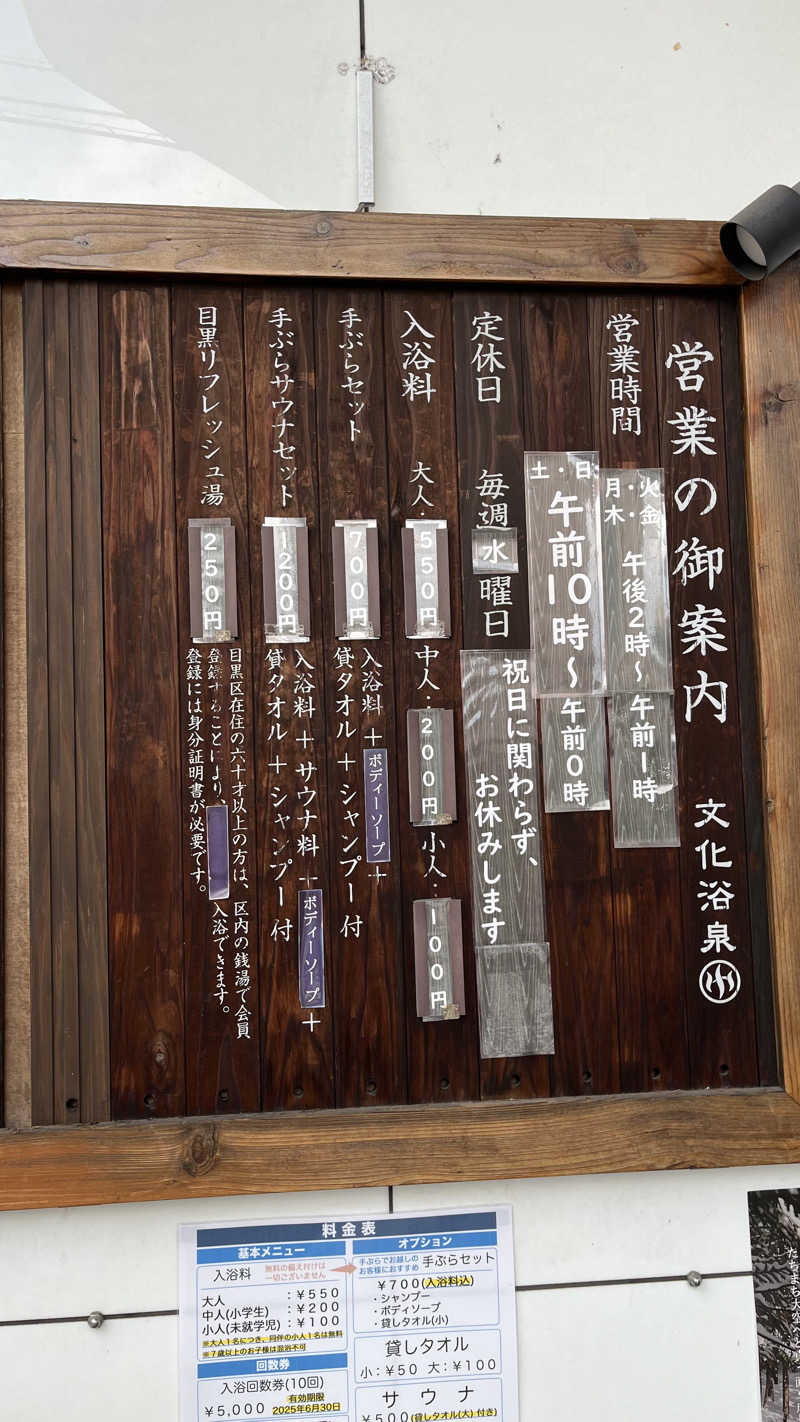 営業の御案内 文化浴泉
営業時間
火・金
月・木・ 午後2時〜午前1時
土・日 午前10時〜午前0時
定休日 毎週水曜日
祝日に関わらず、
お休みします
入浴料 大人:550円 中人:200円 小人:100円
手ぶらセット 700円
入浴料+ボディーソープ+
貸タオル+シャンプー付
手ぶらサウナセット 1200円
入浴料+サウナ料+ボディーソープ+
貸タオル+シャンプー付
目黒リフレッシュ湯 250円
目黒区在住の六十才以上の方は、区内の銭湯で会員
登録することにより、 入浴できます。
登録には身分証明書が必要です。
料金表
基本メニュー
入浴料
無料の備え付けは
一切ございません
大人 :¥550
中人(小学生) :¥200
小人(未就学児) :¥100
※大人1名につき、同伴の小人1名は無料
※7歳以上のお子様は混浴不可
回数券
入浴回数券(10回)
¥5,000
有効期限
2025年6月30日
オプション
手ぶらでお越しの
お客様におすすめ
手ぶらセット
¥700(入浴料込)
・シャンプー
・ボディソープ
・貸しタオル(小)
貸しタオル
小:¥50 大:¥100
サウナ
¥500(貸しタオル(大)付き)